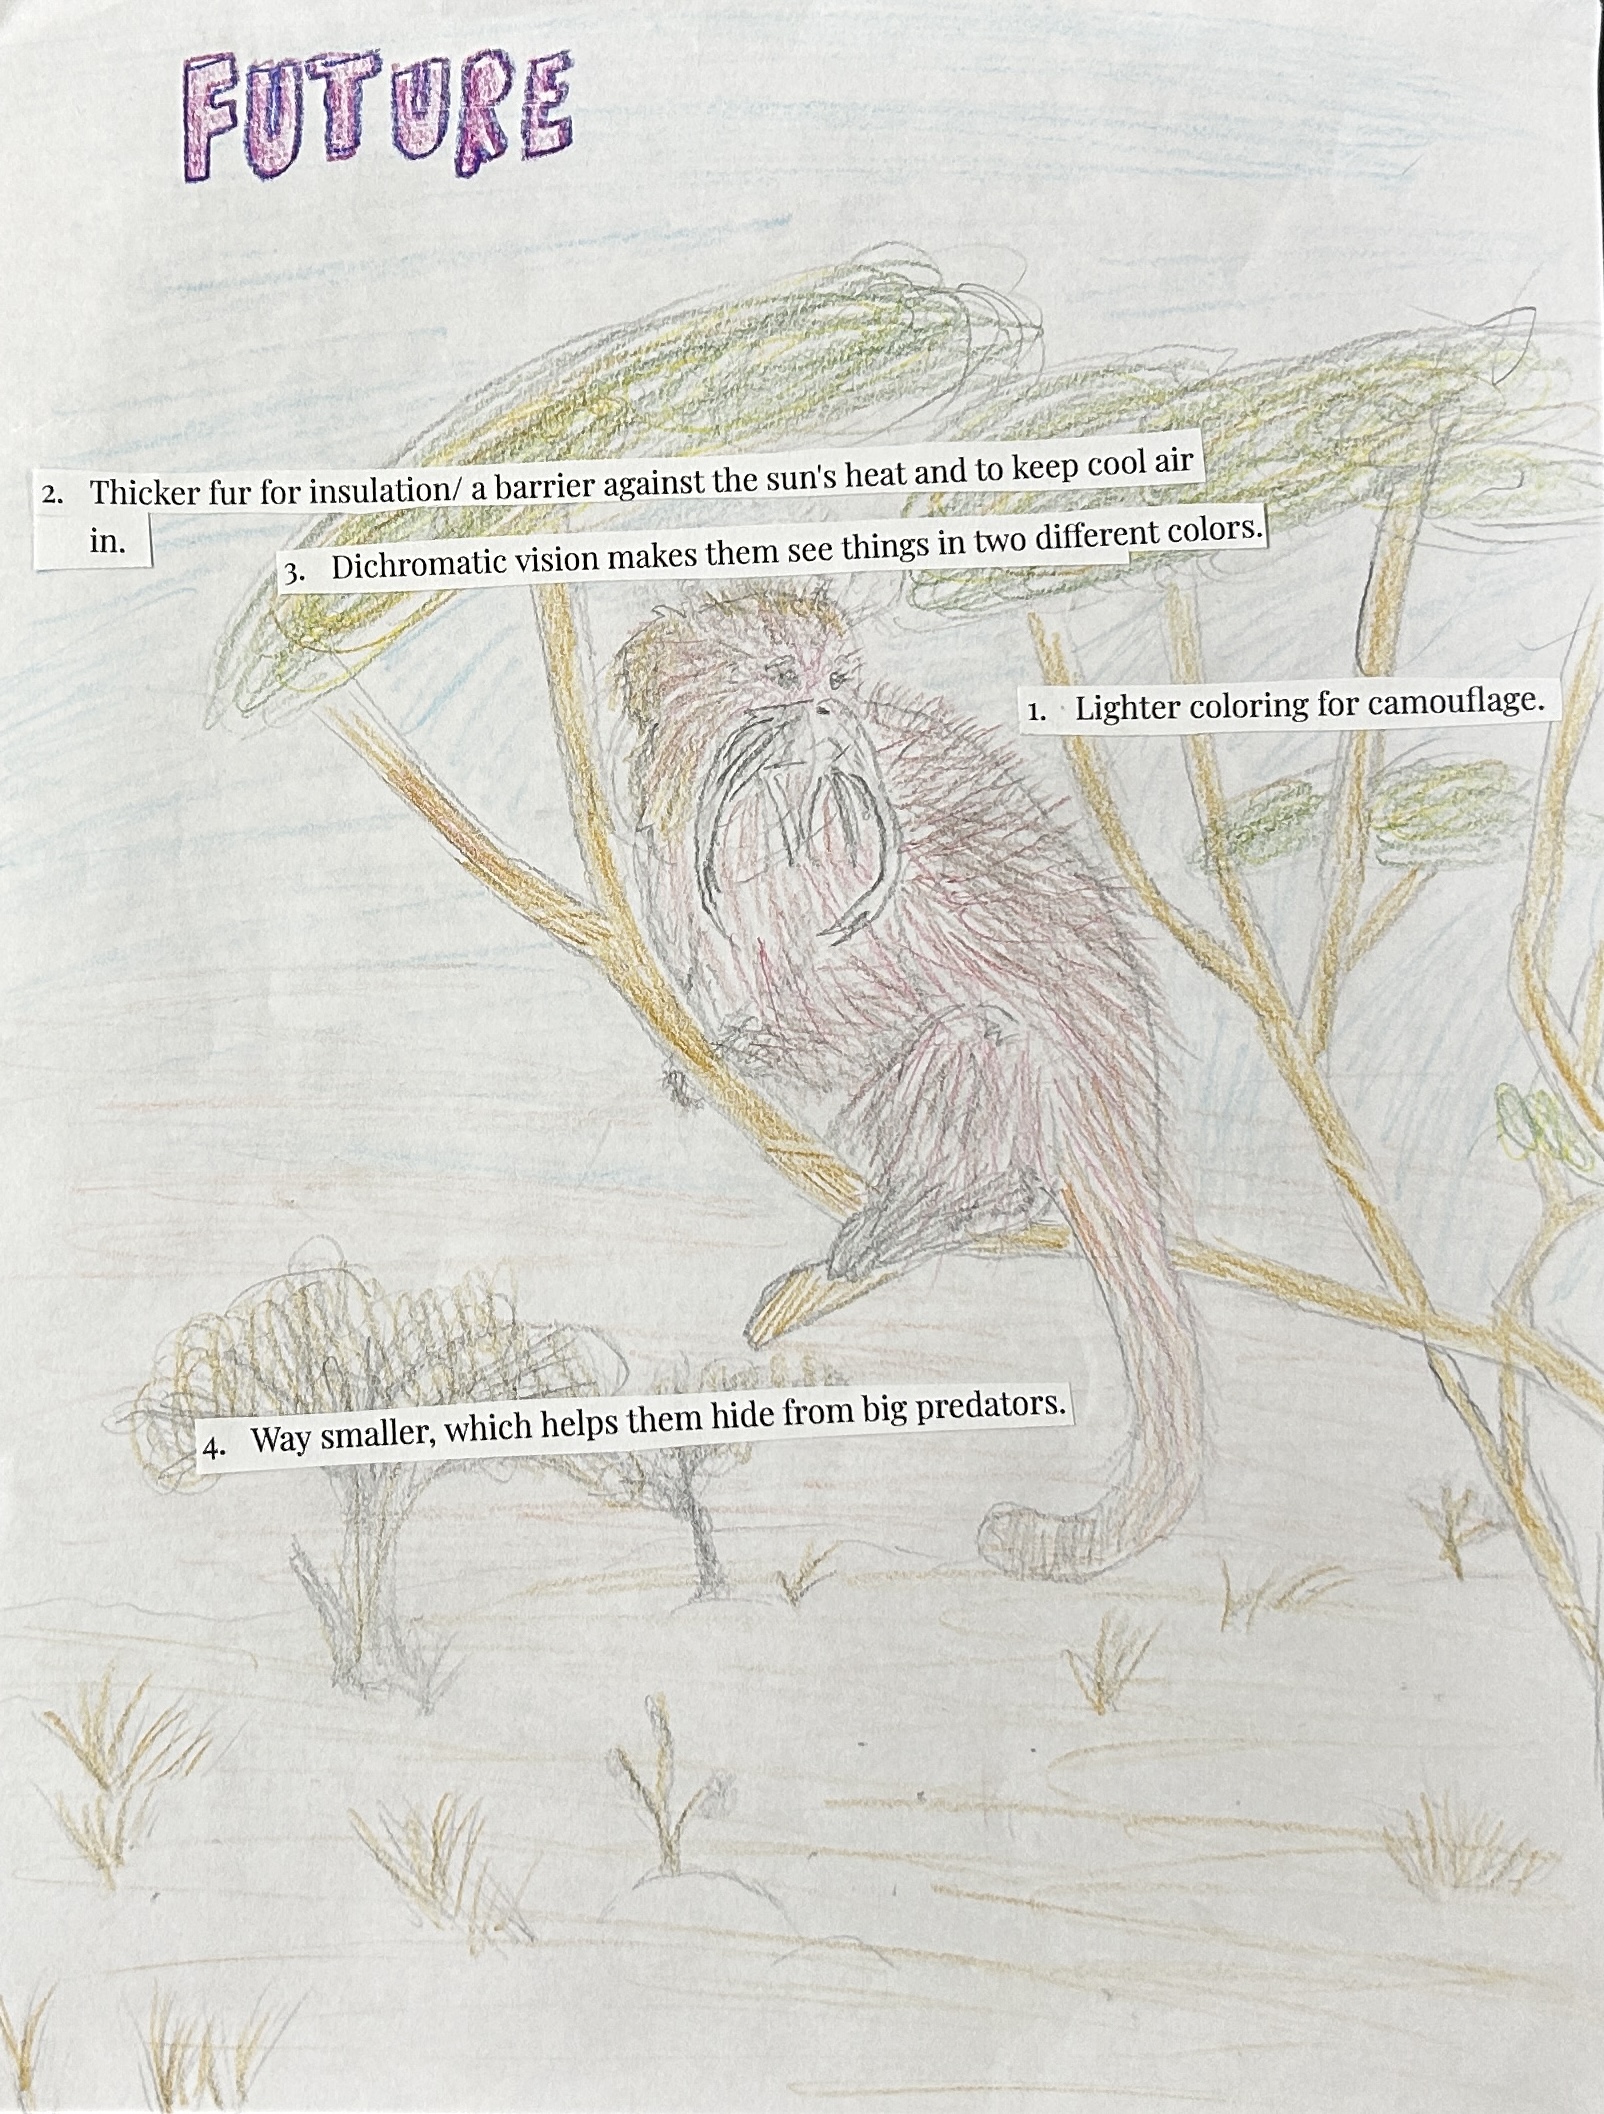 FUTURE
2. Thicker fur for insulation/ a barrier against the sun's heat and to keep cool air
in.
3. Dichromatic vision makes them see things in two different colors.
1. Lighter coloring for camouflage.
4. Way smaller, which helps them hide from big predators.